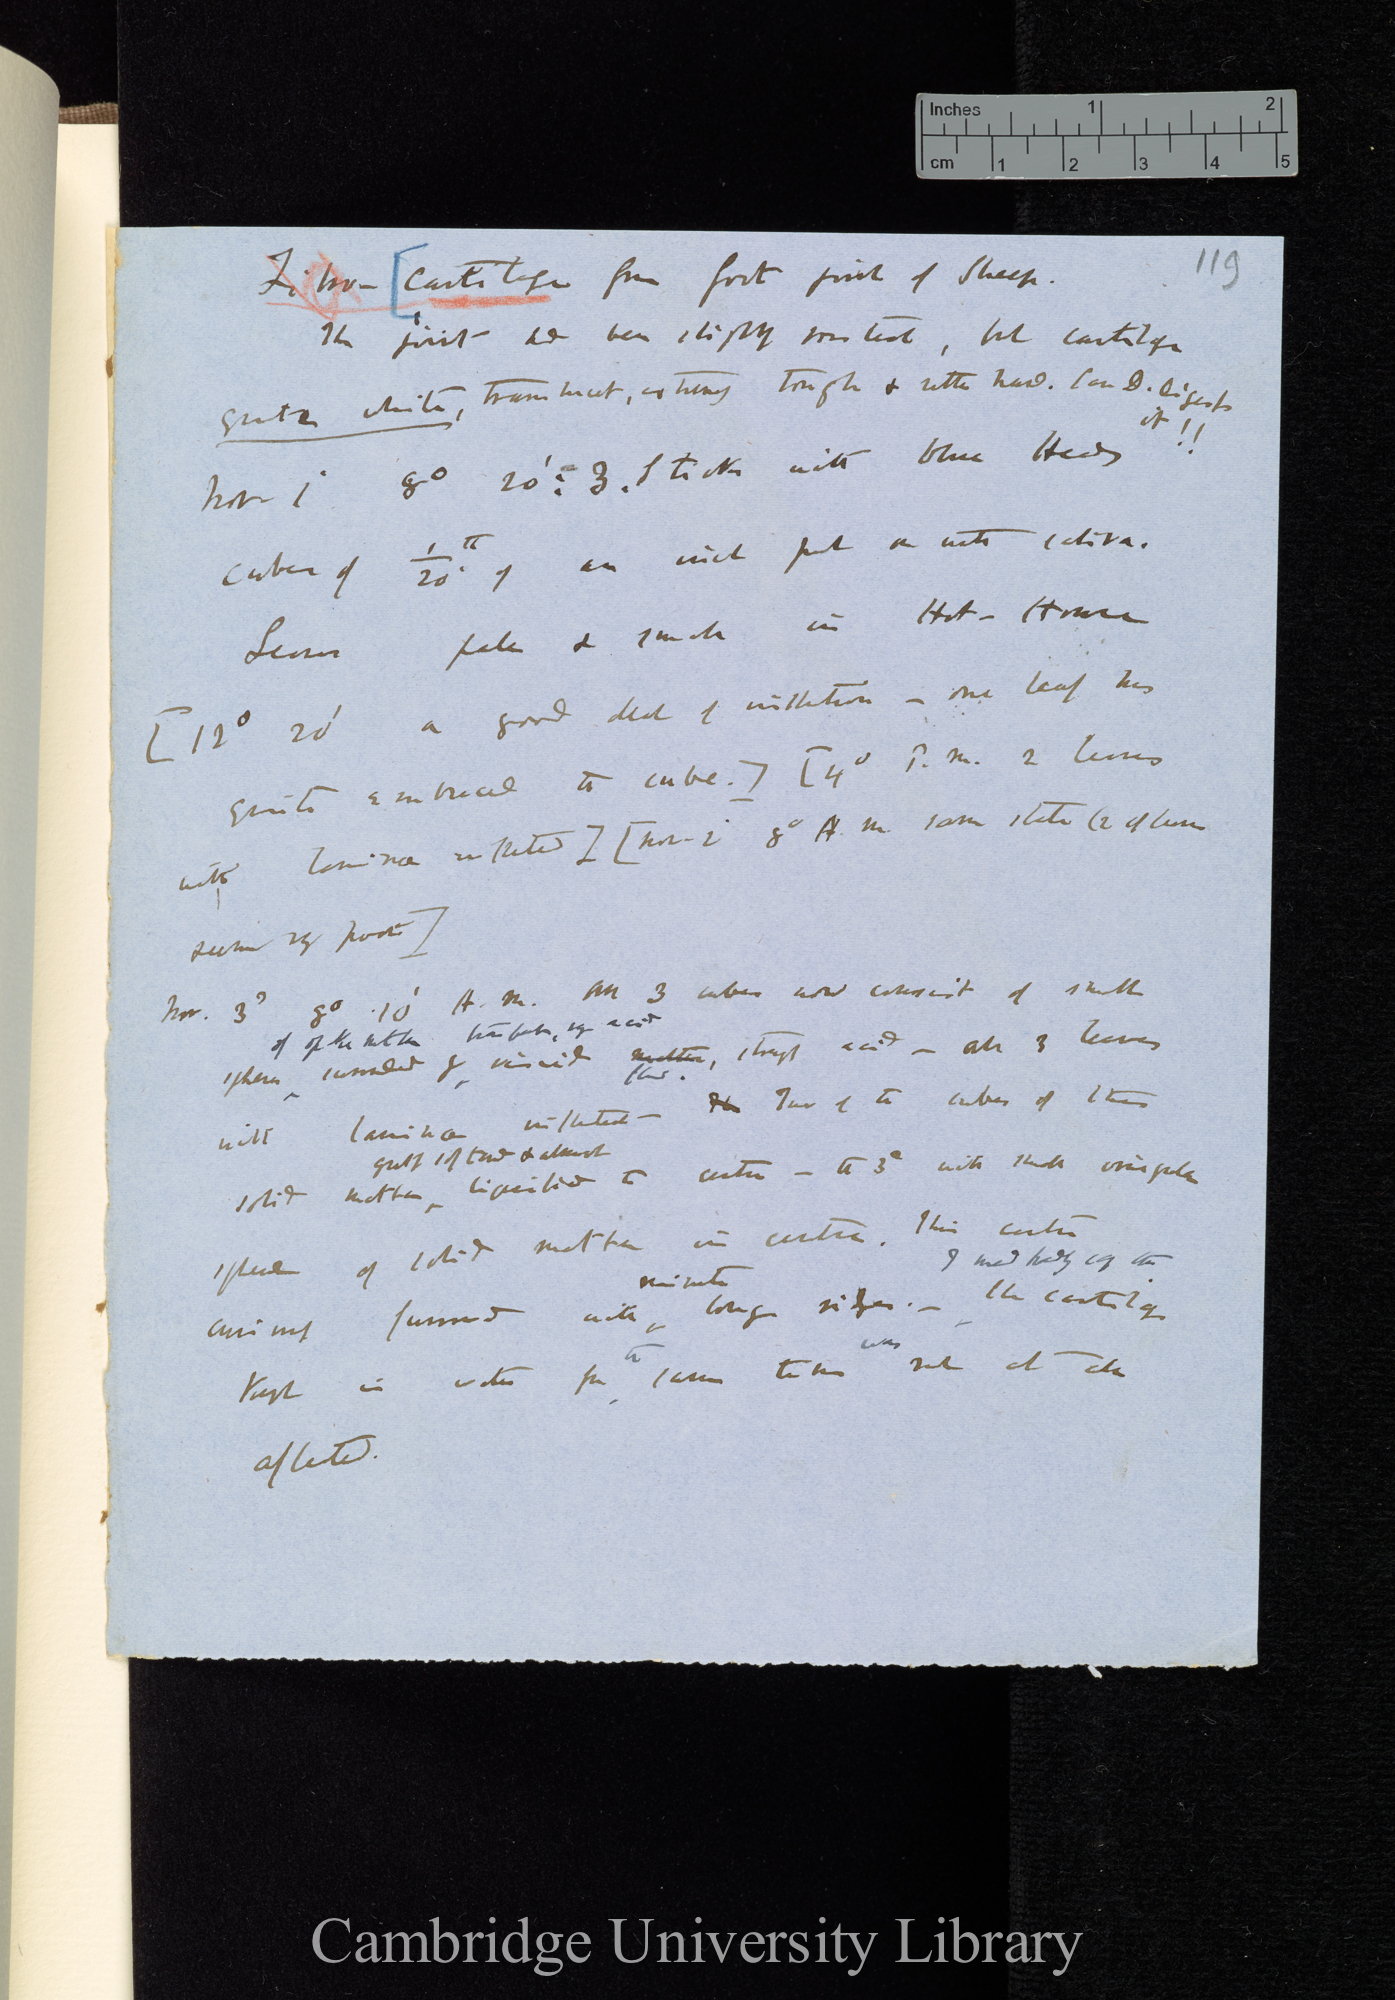 Inches 1 2
cm 1 2 3 4 5
119
Fibro- [Cartilage from foot joint of Sheep.
The joint had been slightly roasted, but cartilage
quite white, translucent, extremely tough & rather hard. Can D. digest
it!!
Nov 1 8° 20' 3. Sticks with blue Heads
cubes of 1/20th of an inch put on with saliva.
Leaves pale & small in Hot-House
[12° 20' a good deal of inflection — one leaf has
quite embraced the cube.] [4° P.m. 2 leaves
with laminæ inflected] [Nov- 2 8° A.m. same state (2 of leaves
seem very poor]
Nov. 3d 8° 10' A.m. All 3 cubes now consist of small
of of the matter transparent, very acid
spheres, surrounded by viscid matter, strongly acid — all 3 leaves
fluid.
with laminæ inflected — The Two of the cubes of this
quite softened & almost
solid matter, liquefied to centre — the 3d with small irregular
sphere of solid matter in centre. This centre
I used freshly
minute
curiously furrowed with longer ridges. — The cartilage
the was
Kept in water for same time not at all
affected.
Cambridge University Library